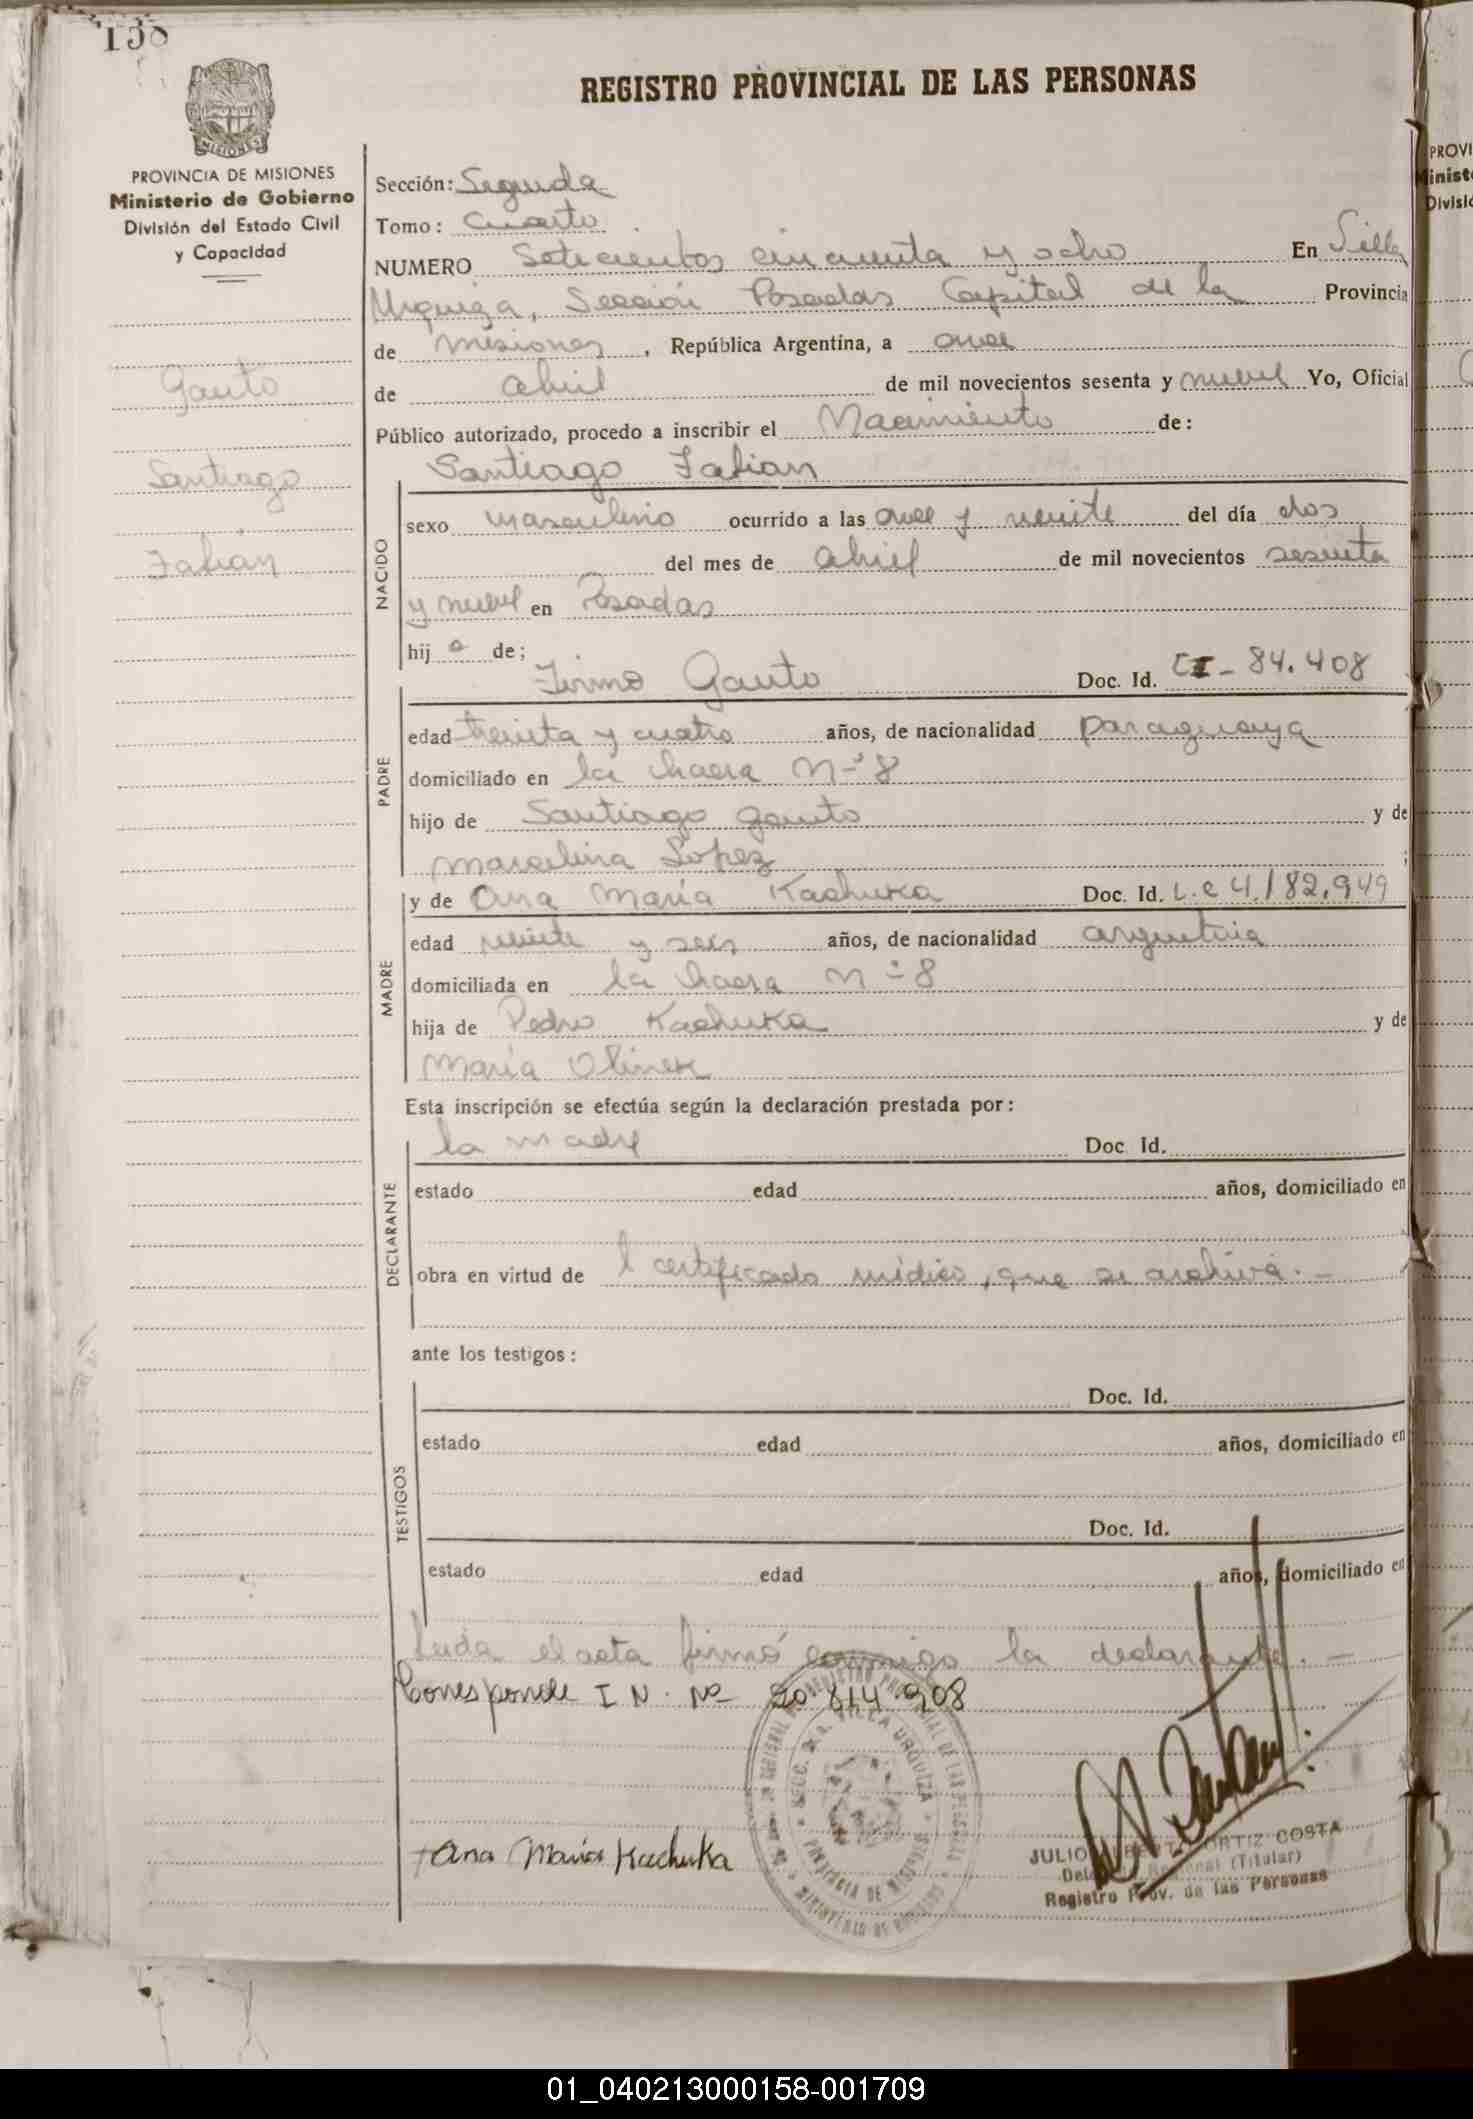 158
REGISTRO PROVINCIAL DE LAS PERSONAS
MISIONES
PROVINCIA DE MISIONES
Ministerio de Gobierno
División del Estado Civil
y Capacidad
Gauto
Santiago
Fabián
Sección: Segunda
Tomo: Cuarto
NUMERO Setecientos cincuenta y ocho En Villa
Urquiza, Sección Posadas Capital de la Provincia
de Misiones, República Argentina, a once
de abril de mil novecientos sesenta y nueve Yo, Oficial
Público autorizado, procedo a inscribir el Nacimiento de:
NACIDO
Santiago Fabian
sexo masculino ocurrido a las once y veinte del día dos
del mes de abril de mil novecientos sesenta
y nueve en Posadas
hij o de;
PADRE
Firmo Gauto Doc. Id. CI- 84.408
edad treinta y cuatro años, de nacionalidad paraguaya
domiciliado en la chacra n° 8
hijo de Santiago Gauto y de
Marcelina Lopez ;
MADRE
y de Ana María Kachuka Doc. Id. L.C 4.182.949
edad veinte y seis años, de nacionalidad argentina
domiciliada en la chacra n° 8
hija de Pedro Kachuka y de
María Olinek
Esta inscripción se efectúa según la declaración prestada por:
DECLARANTE
la madre Doc. Id.
estado edad años, domiciliado en
obra en virtud de l certificado médico, que se archiva.-
ante los testigos:
TESTIGOS
Doc. Id.
estado edad años, domiciliado en
Doc. Id.
estado edad años, domiciliado en
Leida el acta firmó conmigo la declarante.-
Corresponde I N. No- 20.814.908
SECC. 2a. VILLA URQUIZA
PROVINCIA DE MISIONES
REGISTRO PROVINCIAL DE LAS PERSONAS
MINISTERIO DE GOBIERNO
Ana María Kachuka
JULIO ALBERTO ORTIZ COSTA
Delegado Regional (Titular)
Registro Prov. de las Personas
PROVI
Ministe
Divisió
01_040213000158-001709